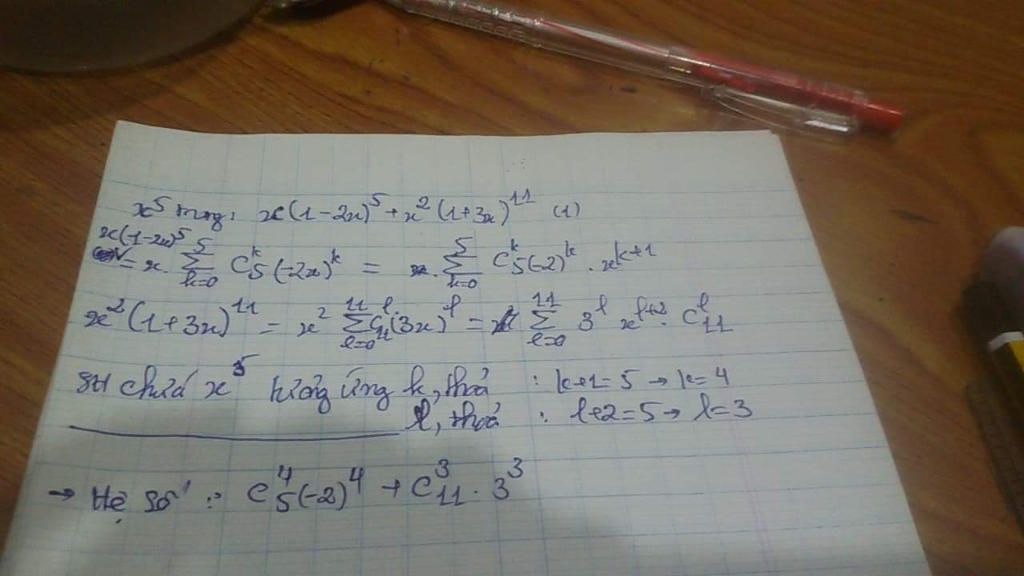 x⁵ trong: x(1-2x)⁵ + x²(1+3x)¹¹ (1)
x(1-2x)⁵
= x. ∑_{k=0}^{5} C_5^k (-2x)^k = ∑_{k=0}^{5} C_5^k (-2)^k . x^{k+1}
x²(1+3x)¹¹ = x² ∑_{l=0}^{11} C_{11}^l (3x)^l = ∑_{l=0}^{11} 3^l x^{l+2} . C_{11}^l
SH chứa x⁵ tương ứng k, thoả : k+1=5 → k=4
l, thoả : l+2=5 → l=3
→ Hệ số : C_5^4 (-2)^4 + C_{11}^3 . 3^3